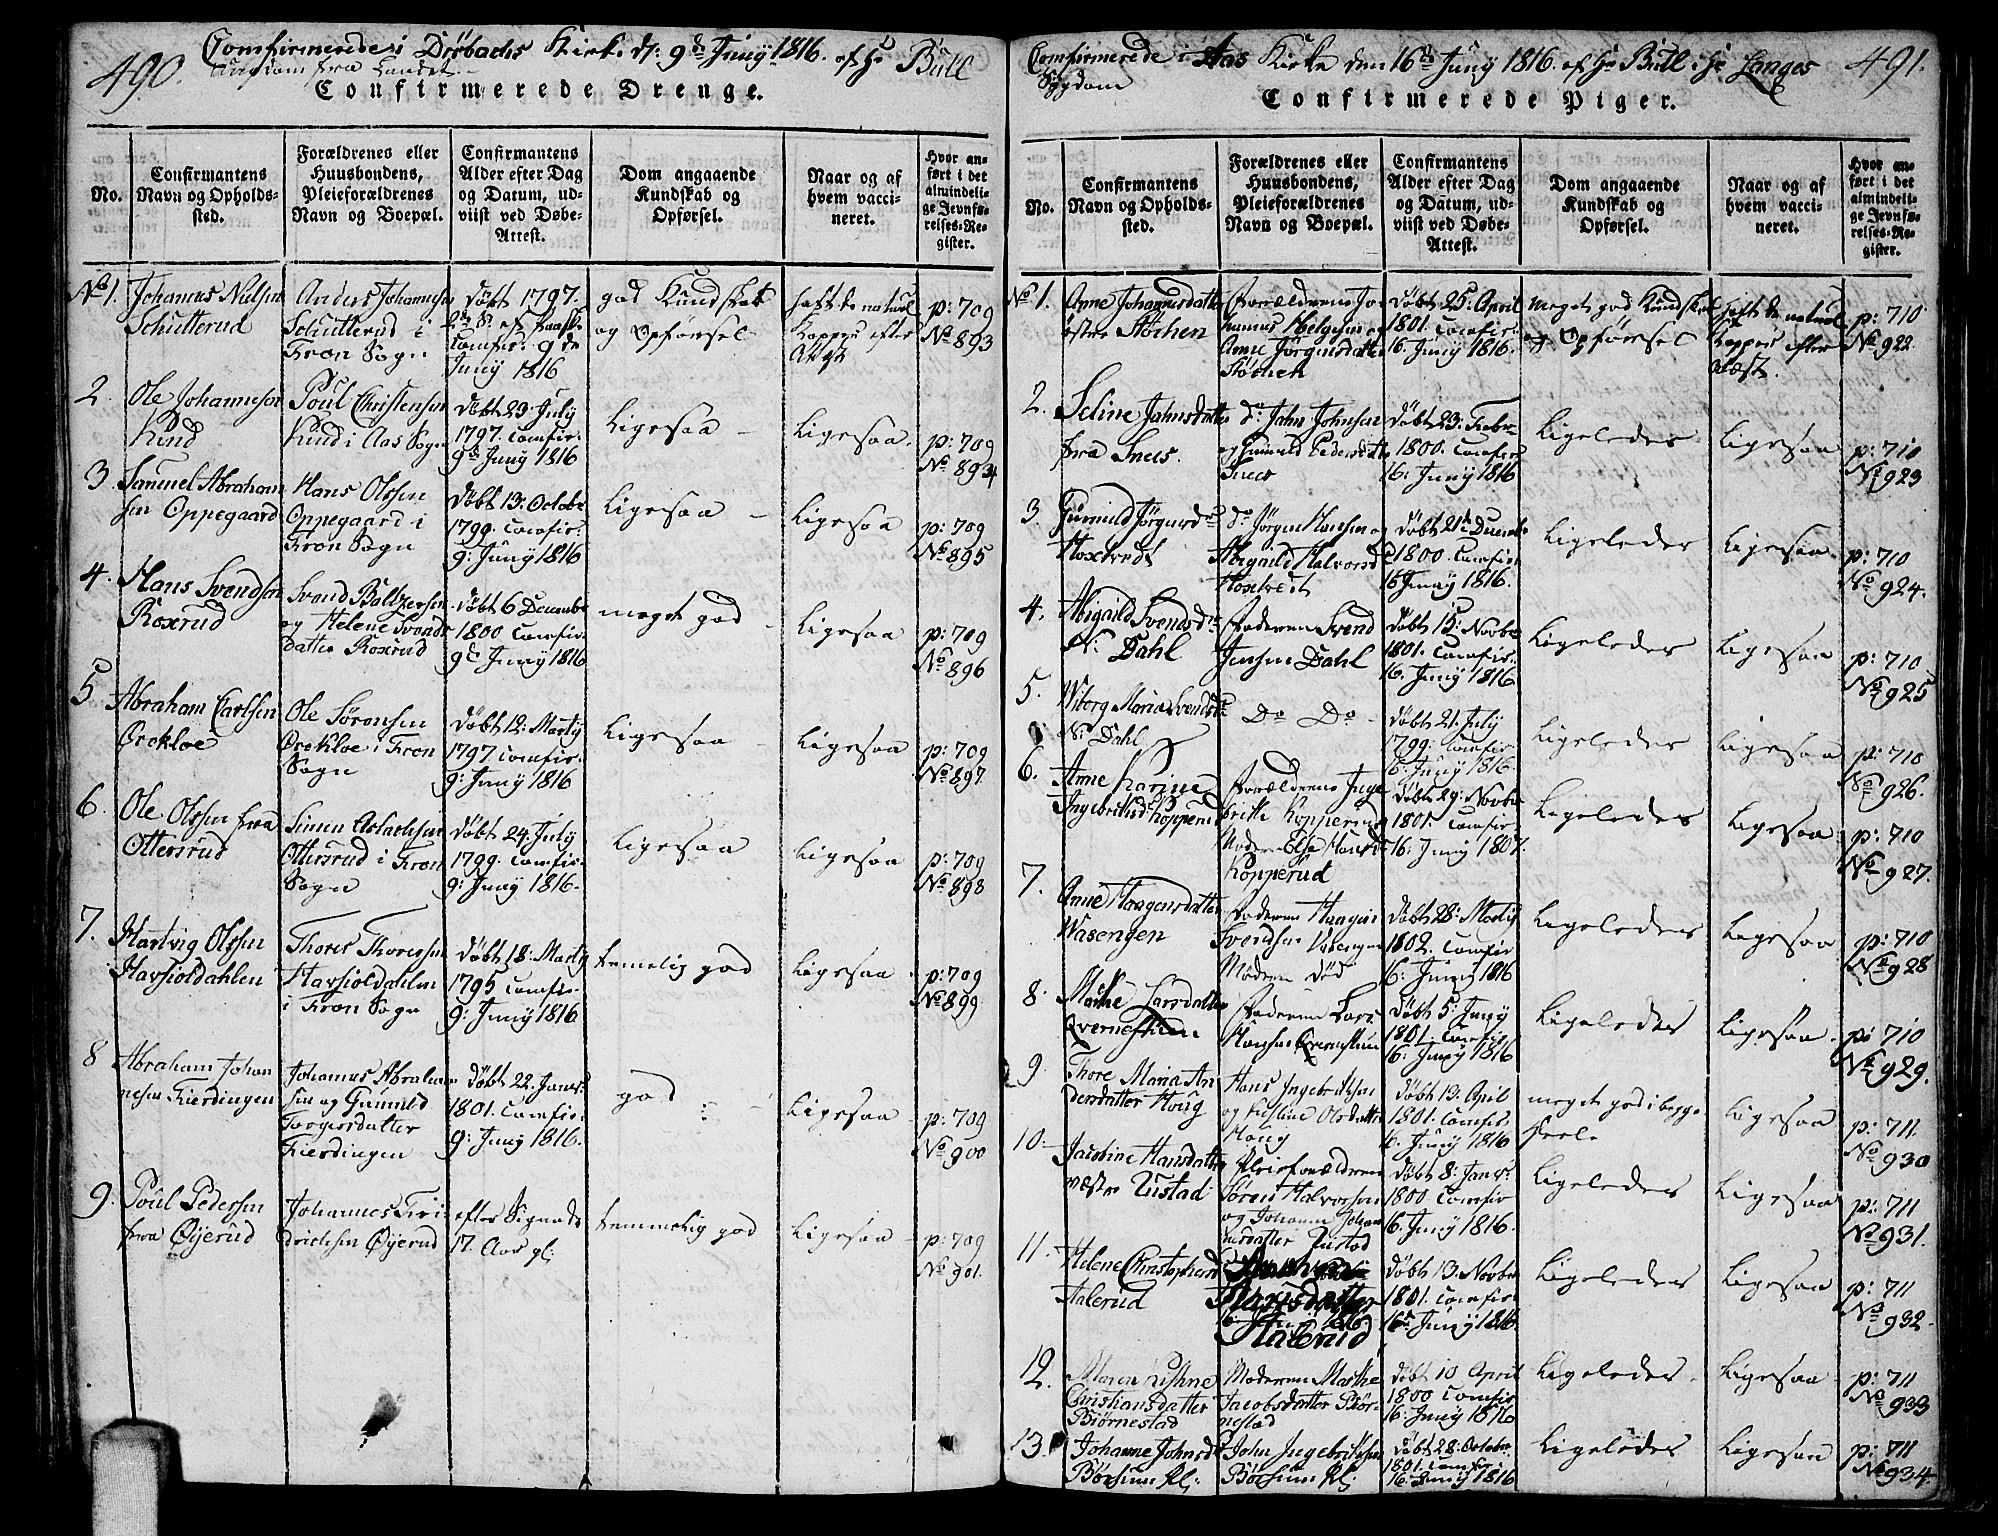 490. Comfirmerede i Dröbachs Kirke d: 9de Juny 1816. af Hr Bull
Ungdom fra Landet
Confirmerede Drenge.
No.
Confirmantens Navn og Opholds-sted.
Forældrenes eller Huusbondens, Pleieforældrenes Navn og Boepæl.
Confirmantens Alder efter Dag og Datum, ud-viist ved Døbe-Attest.
Dom angaaende Kundskab og Opførsel.
Naar og af hvem vacci-neret.
Hvor an-ført i det almindeli-ge Jevnfø-relses-Re-gister.
No 1. Johannes Nielsen
Schutterud
Anders Johannesen
Schutterud i
Fron Sogn
Döbt 1797.
Comfir: 9de
Juny 1816
god Kundskab
og Opførsel
haft de naturl
Kopper efter
Attest
p: 709
No 893
2. Ole Johannesen
Hund
Poul Christensen
Hund i Aas Sogn
Döbt 23. July
1797. Comfir:
9de Juny 1816
Ligesaa
Ligesaa.
p: 709
No 894
3. Samuel Abraham
sen Oppegaard
Hans Olssen
Oppegaard i
Fron Sogn
Döbt 13. Octobr
1799. Comfir:
9: Juny 1816
Ligesaa
Ligesaa
p: 709
No 895
4. Hans Svendsen
Roxrud
Svend Baltzersen
og Helene Svends
datter Roxrud
Döbt 6 Decembr
1800 Comfir:
9de Juny 1816
meget god
Ligesaa
p: 709
No 896
5 Abraham Carlsen
Örekloe
Ole Sörensen
Örekloe i Fron
Sogn
Döbt 12. Marty
1797 Comfir:
9: Juny 1816
Ligesaa
Ligesaa
p: 709
No 897.
6. Ole Olssen fra
Ottersrud
Simen Aslachsen
Ottersrud i Fron
Sogn
Döbt 24. July
1799. Comfir:
9: Juny 1816.
Ligesaa
Ligesaa
p: 709
No 898
7. Hartvig Olssen
Havsioldahlen
Thores Thoressen
Havsioldahlen
i Fron Sogn
Döbt 18. Marty
1795 Comfir:
9: Juny 1816
temelig god
Ligesaa
p: 709
No 899.
8 Abraham Johan
nesen Fierdingen
Johannes Abraham
sen og Gunnild
Torgersdatter
Fierdingen
Döbt 22. Janr:
1801. Comfir:
9: Juny 1816.
god
Ligesaa
p: 709
No 900
9. Poul Pedersen
fra Öÿerud
Johannes Fri
drichsen Öÿerud
efter Sigende
17. Aar gl:
temmelig god
Ligesaa
p: 709
No 901.
Comfirmerede i Aas Kirke den 16de Juny 1816. af Hr Bull i Hr Langes 491.
Sygdom
Confirmerede Piger.
No.
Confirmantens Navn og Opholds-sted.
Forældrenes eller Huusbondens, Pleieforældrenes Navn og Boepæl.
Confirmantens Alder efter Dag og Datum, ud-viist ved Døbe-Attest.
Dom angaaende Kundskab og Opførsel.
Naar og af hvem vacci-neret.
Hvor an-ført i det almindeli-ge Jevnfø-relses-Re-gister.
No 1. Anne Johannesdatter
østre Stöchen
Forældrene Jo
hannes Helgesen og
Anne Jörgensdatter
Stöchen
Döbt 25. April
1801. Comfir:
16. Juny 1816.
meget god Kundskab
og Opførsel
haft de naturl
Kopper efter
Attest.
p: 710
No 922
2. Seline Jahnsdatter
fra Snees.
Do Jahn Johnsen
og Gunnild Pedersdatter
Snees
Döbt 23. Febr
1800. Comfir
16: Juny 1816
Ligeledes
Ligesaa
p: 710
No 923
3. Gunnild Jörgensdr
Hoxtvedt
Do Jörgen Hansen og
Abigaild Halvorsd
Hoxtvedt
Döbt 21de Decembr
1800. Comfir
16 Juny 1816.
Ligeledes
Ligesaa
p: 710
No 924.
4. Abigaild Svendsdr
N: Dahl
Faderen Svend
Jensen Dahl
Döbt 15. Novbr
1801. Comfir:
16. Juny 1816.
Ligeledes
Ligesaa
p: 710
No 925
5. Wiborg Maria Svendsdr
N: Dahl
Do Do
Döbt 21. July
1799. Comfir:
16: Juny 1816.
Ligeledes
Ligesaa
p: 710
No 926.
6. Anne Karine
Ingebrethsd Kopperud
Forældrene Inge
breth Kopperud
Moderen Else Hansd
Kopperud
Döbt 29. Novbr
1801. Comfir
16. Juny 1807.
Ligeledes
Ligesaa
p: 710
No 927.
7. Anne Haagensdatter
Wasengen
Faderen Haagen
Svendsen Vasengen
Moderen död
Döbt 28: Marty
1802. Comfir
16: Juny 1816
Ligeledes
Ligesaa
p: 710
No 928
8. Mathe Larsdatter
Qvernesthuen
Faderen Lars
Hansen Qvernesthuen
Döbt 5. Juny
1801. Comfir
16: Juny 1816
Ligeledes
Ligesaa
p: 710
No 929.
9. Thore Maria An
dersdatter Houg
Hans Ingebrethsen
og Kirstine Olsdatter
Houg
Döbt 13. April
1801. Comfir:
16. Juny 1816
meget god i begge
Deele
Ligesaa
p: 711.
No 930
10. Jacobine Hansdatter
væstre Rustad
Pleieforældrene
Sören Halvorsen
og Johanne Johan
nesdatter Rustad
Döbt 8: Janr:
1800. Comfir
16. Juny 1816.
Ligeledes
Ligesaa
p: 711
No 931.
11. Helene Christophersd
Aalerud
Hansdatter
Aalerud
Döbt 13. Novbr
1801. Comfir:
16: Juny 1816.
Ligeledes
Ligesaa
p: 711
No 932.
12. Maren
Christiansdatter
Biörnestad
Moderen Mathe
Jacobsdatter Biör-
nestad
Döbt 10 April
1800 Comfir
16: Juny 1816
Ligeledes
Ligesaa
p: 711
No 933
13. Johanne Johnsdr
Börsum Pl:
John Ingebrethsen
Börsum Pl:
Döbt 28. Octobr
1801. Comfir:
16: Juny 1816
Ligeledes
Ligesaa
p: 711
No 934.